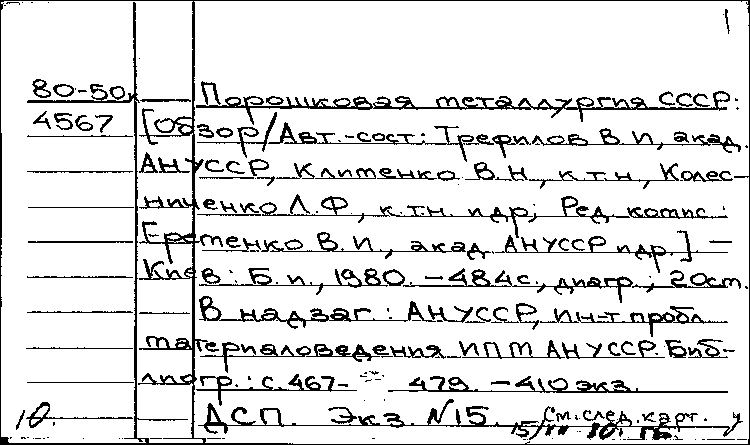 1
80-50к Порошковая металлургия СССР:
4567 [Обзор/Авт.-сост: Трефилов В.И, акад.
АН УССР, Клименко В.Н, к.т.н, Колес-
ниченко Л.Ф, к.т.н. и др; Ред. комис.:
Еременко В.И., акад АН УССР и др.] –
Киев: Б.и., 1980. – 484с., диагр.; 20см.
В надзаг.: АН УССР, Ин-т пробл
материаловедения ИПМ АН УССР. Биб-
лиогр.: с. 467- 479. – 410 экз.
10. ДСП. Экз. N15. См. след. карт.